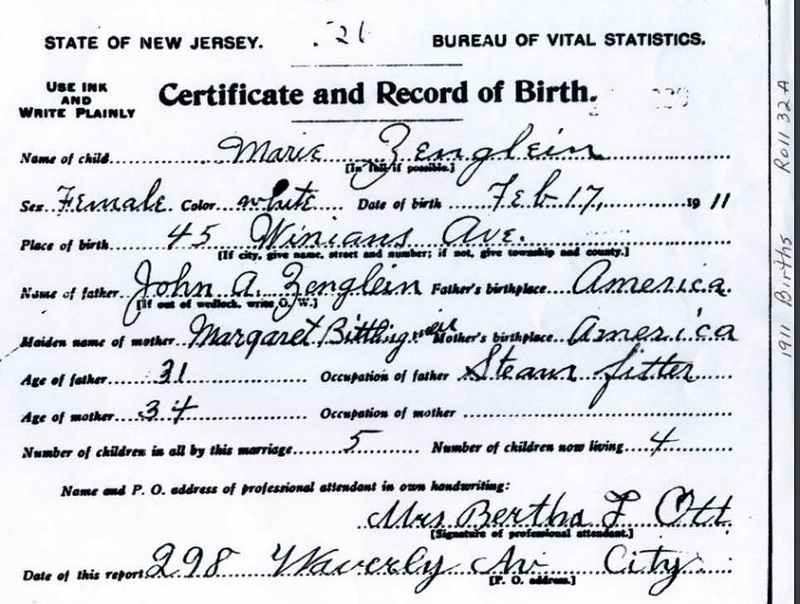 STATE OF NEW JERSEY. 21 BUREAU OF VITAL STATISTICS.
USE INK AND WRITE PLAINLY
Certificate and Record of Birth.
Name of child Marie Zenglein
[In full if possible.]
Sex Female Color white Date of birth Feb 17, 1911
Place of birth 45 Winians Ave.
[If city, give name, street and number; if not, give township and county.]
Name of father John A. Zenglein Father's birthplace America.
[If out of wedlock, write O. W.]
Maiden name of mother Margaret Mother's birthplace America
Age of father 31 Occupation of father Steam fitter
Age of mother 34 Occupation of mother
Number of children in all by this marriage 5 Number of children now living 4
Name and P. O. address of professional attendant in own handwriting:
Mrs Bertha F Ott
[Signature of professional attendant.]
Date of this report 298 Waverly Av City
[P. O. address.]
1911 Births Roll 32A